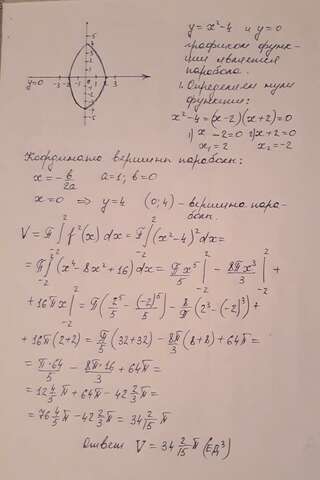 y = x² - 4 и y = 0
графиком функ-
ции является
парабола.
1. Определяем нули
функции:
x² - 4 = (x - 2)(x + 2) = 0
1) x - 2 = 0 2) x + 2 = 0
x₁ = 2 x₂ = -2
y=0 -3 -2 -1 1 2 3
Координаты вершины параболы:
x = -b/2a a = 1; b = 0
x = 0 ⇒ y = 4 (0; 4) - вершина пара-
болы.
V = π ∫₋₂² f²(x) dx = π ∫₋₂² (x² - 4)² dx =
= π ∫₋₂² (x⁴ - 8x² + 16) dx = π/5 x⁵ |₋₂² - 8π x³/3 |₋₂² +
+ 16π x |₋₂² = π/5 (2⁵ - (-2)⁵) - 8π/3 (2³ - (-2)³) +
+ 16π (2 + 2) = π/5 (32 + 32) - 8π/3 (8 + 8) + 64π =
= π·64/5 - 8π·16/3 + 64π =
= 12 4/5 π + 64π - 42 2/3 π =
= 76 4/5 π - 42 2/3 π = 34 2/15 π
Ответ V = 34 2/15 π (ЕД³)